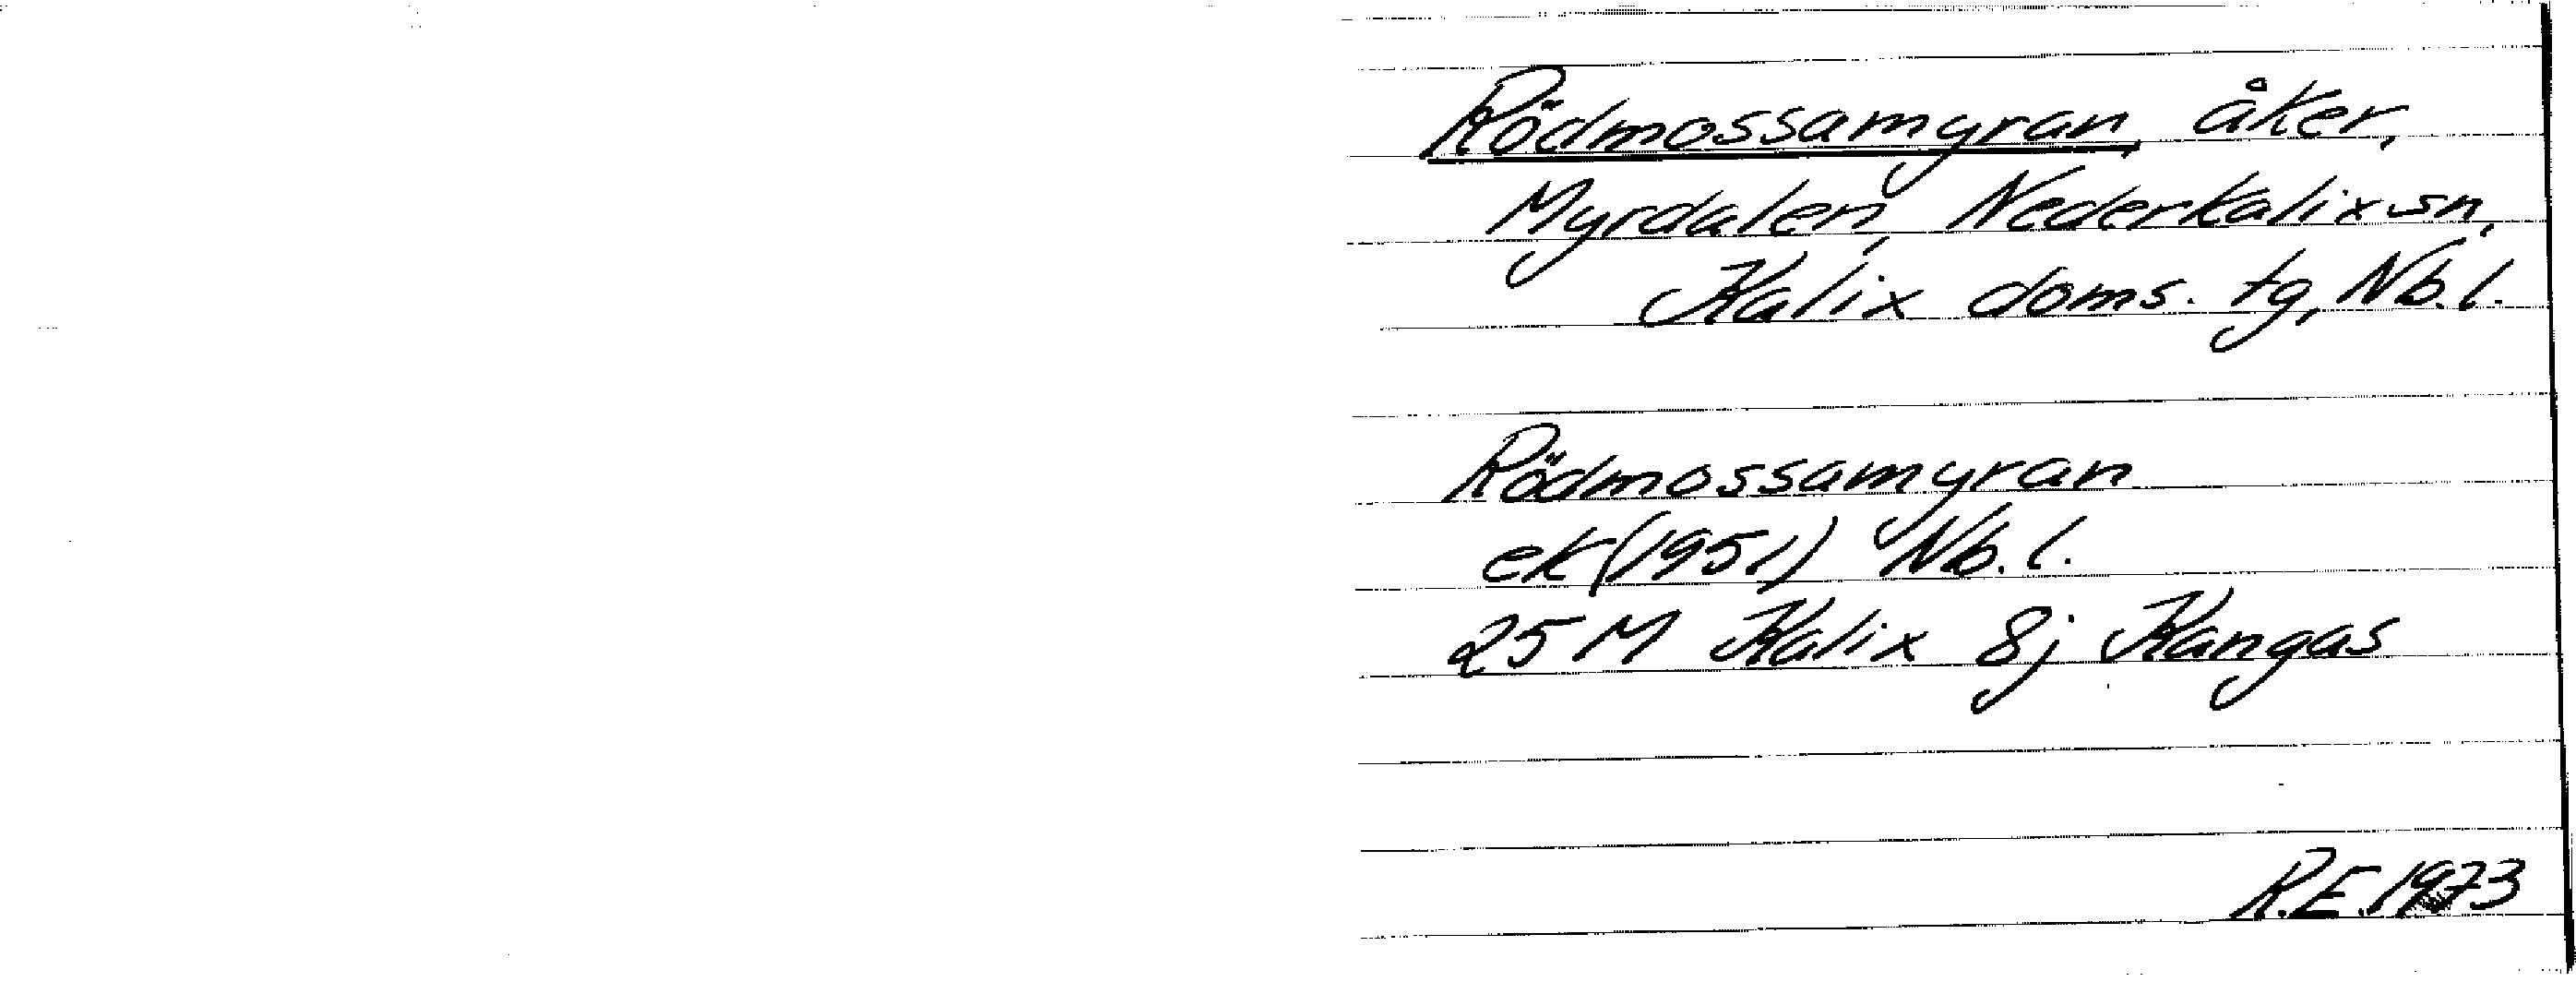 Rödmossamyran, åker,
Myrdalen, Nederkalix sn,
Kalix doms. tg, Nb.l.
Rödmossamyran
ek (1951) Nb.l.
25 M Kalix 8j Kangas
R.E. 1973